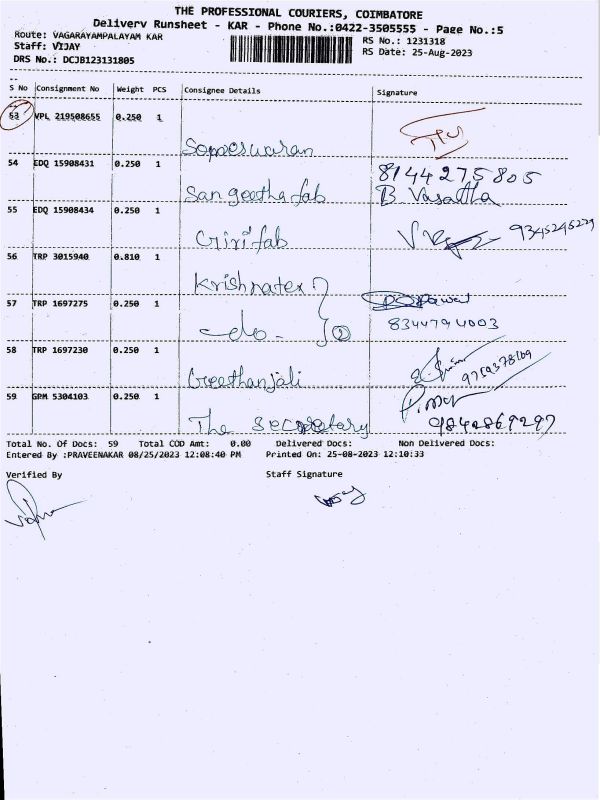 THE PROFESSIONAL COURIERS, COIMBATORE
Delivery Runsheet - KAR - Phone No.:0422-3505555 - Page No.:5
Route: VAGARAYAMPALAYAM KAR
RS No.: 1231318
Staff: VIJAY
RS Date: 25-Aug-2023
DRS No.: DCJB123131805
S No Consignment No Weight PCS Consignee Details Signature
53 VPL 219508655 0.250 1
54 EDQ 15908431 0.250 1 8144275805
Sangeetha fab B. Vasantha
55 EDQ 15908434 0.250 1 9345245229
Giri fab
56 TRP 3015940 0.810 1
Krishnatex
57 TRP 1697275 0.250 1
- do - 2 8344794003
58 TRP 1697230 0.250 1
Geethanjali
59 GPM 5304103 0.250 1
The secretary 9842869297
Total No. Of Docs: 59 Total COD Amt: 0.00 Delivered Docs: Non Delivered Docs:
Entered By :PRAVEENAKAR 08/25/2023 12:08:40 PM Printed On: 25-08-2023 12:10:33
Verified By Staff Signature